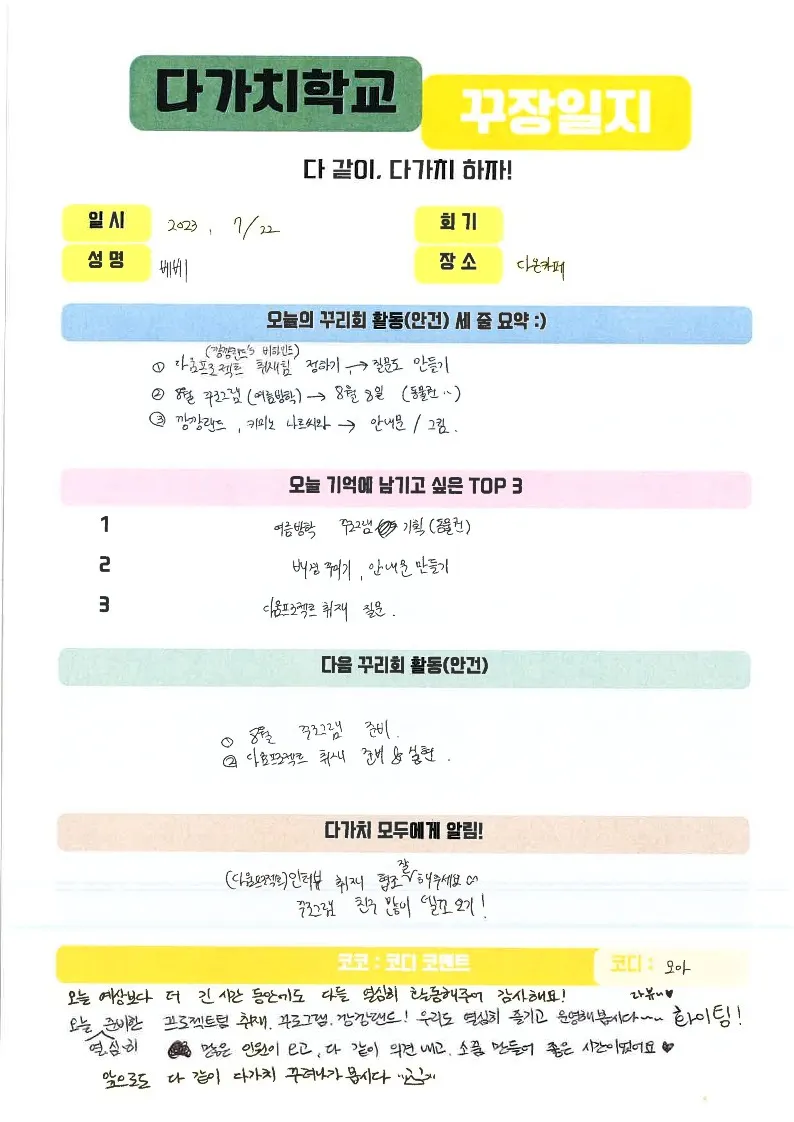 다가치학교
꾸장일지
다 같이, 다가치 하자!
일시 2023. 7/22
회기
성명 베비
장소 다온카페
오늘의 꾸리회 활동(안건) 세 줄 요약 :)
① 다음프로젝트 취재팀 정하기 → 질문도 만들기
② 8월 꾸로그램 (여름방학) → 8월 8일 (동물권 ..)
③ 깡깡랜드, 키피노 나르씨와 → 안내문 / 그림.
오늘 기억에 남기고 싶은 TOP 3
1 여름방학 꾸로그램 기획 (동물권)
2 배경 꾸미기, 안내문 만들기
3 다음프로젝트 취재 질문.
다음 꾸리회 활동(안건)
① 8월 꾸로그램 준비.
② 다음프로젝트 취재 준비 & 실현.
다가치 모두에게 알림!
(다음프로젝트) 인터뷰 취재 협조 잘 해주세요
꾸로그램 친구 많이 데꼬 오기!
코코 : 코디 코멘트
코디 : 모아
오늘 예상보다 더 긴 시간 동안에도 다들 열심히 활동해주어 감사해요! 라뷰~♥
오늘 열심히 준비한 프로젝트텀 취재, 꾸로그램, 깡깡랜드! 우리도 열심히 즐기고 운영해봅시다~~ 화이팅!
많은 인원이 모고, 다 같이 의견 내고, 소품 만들어 좋은 시간이었어요 ♥
앞으로도 다 같이 다가치 꾸려나가 봅시다